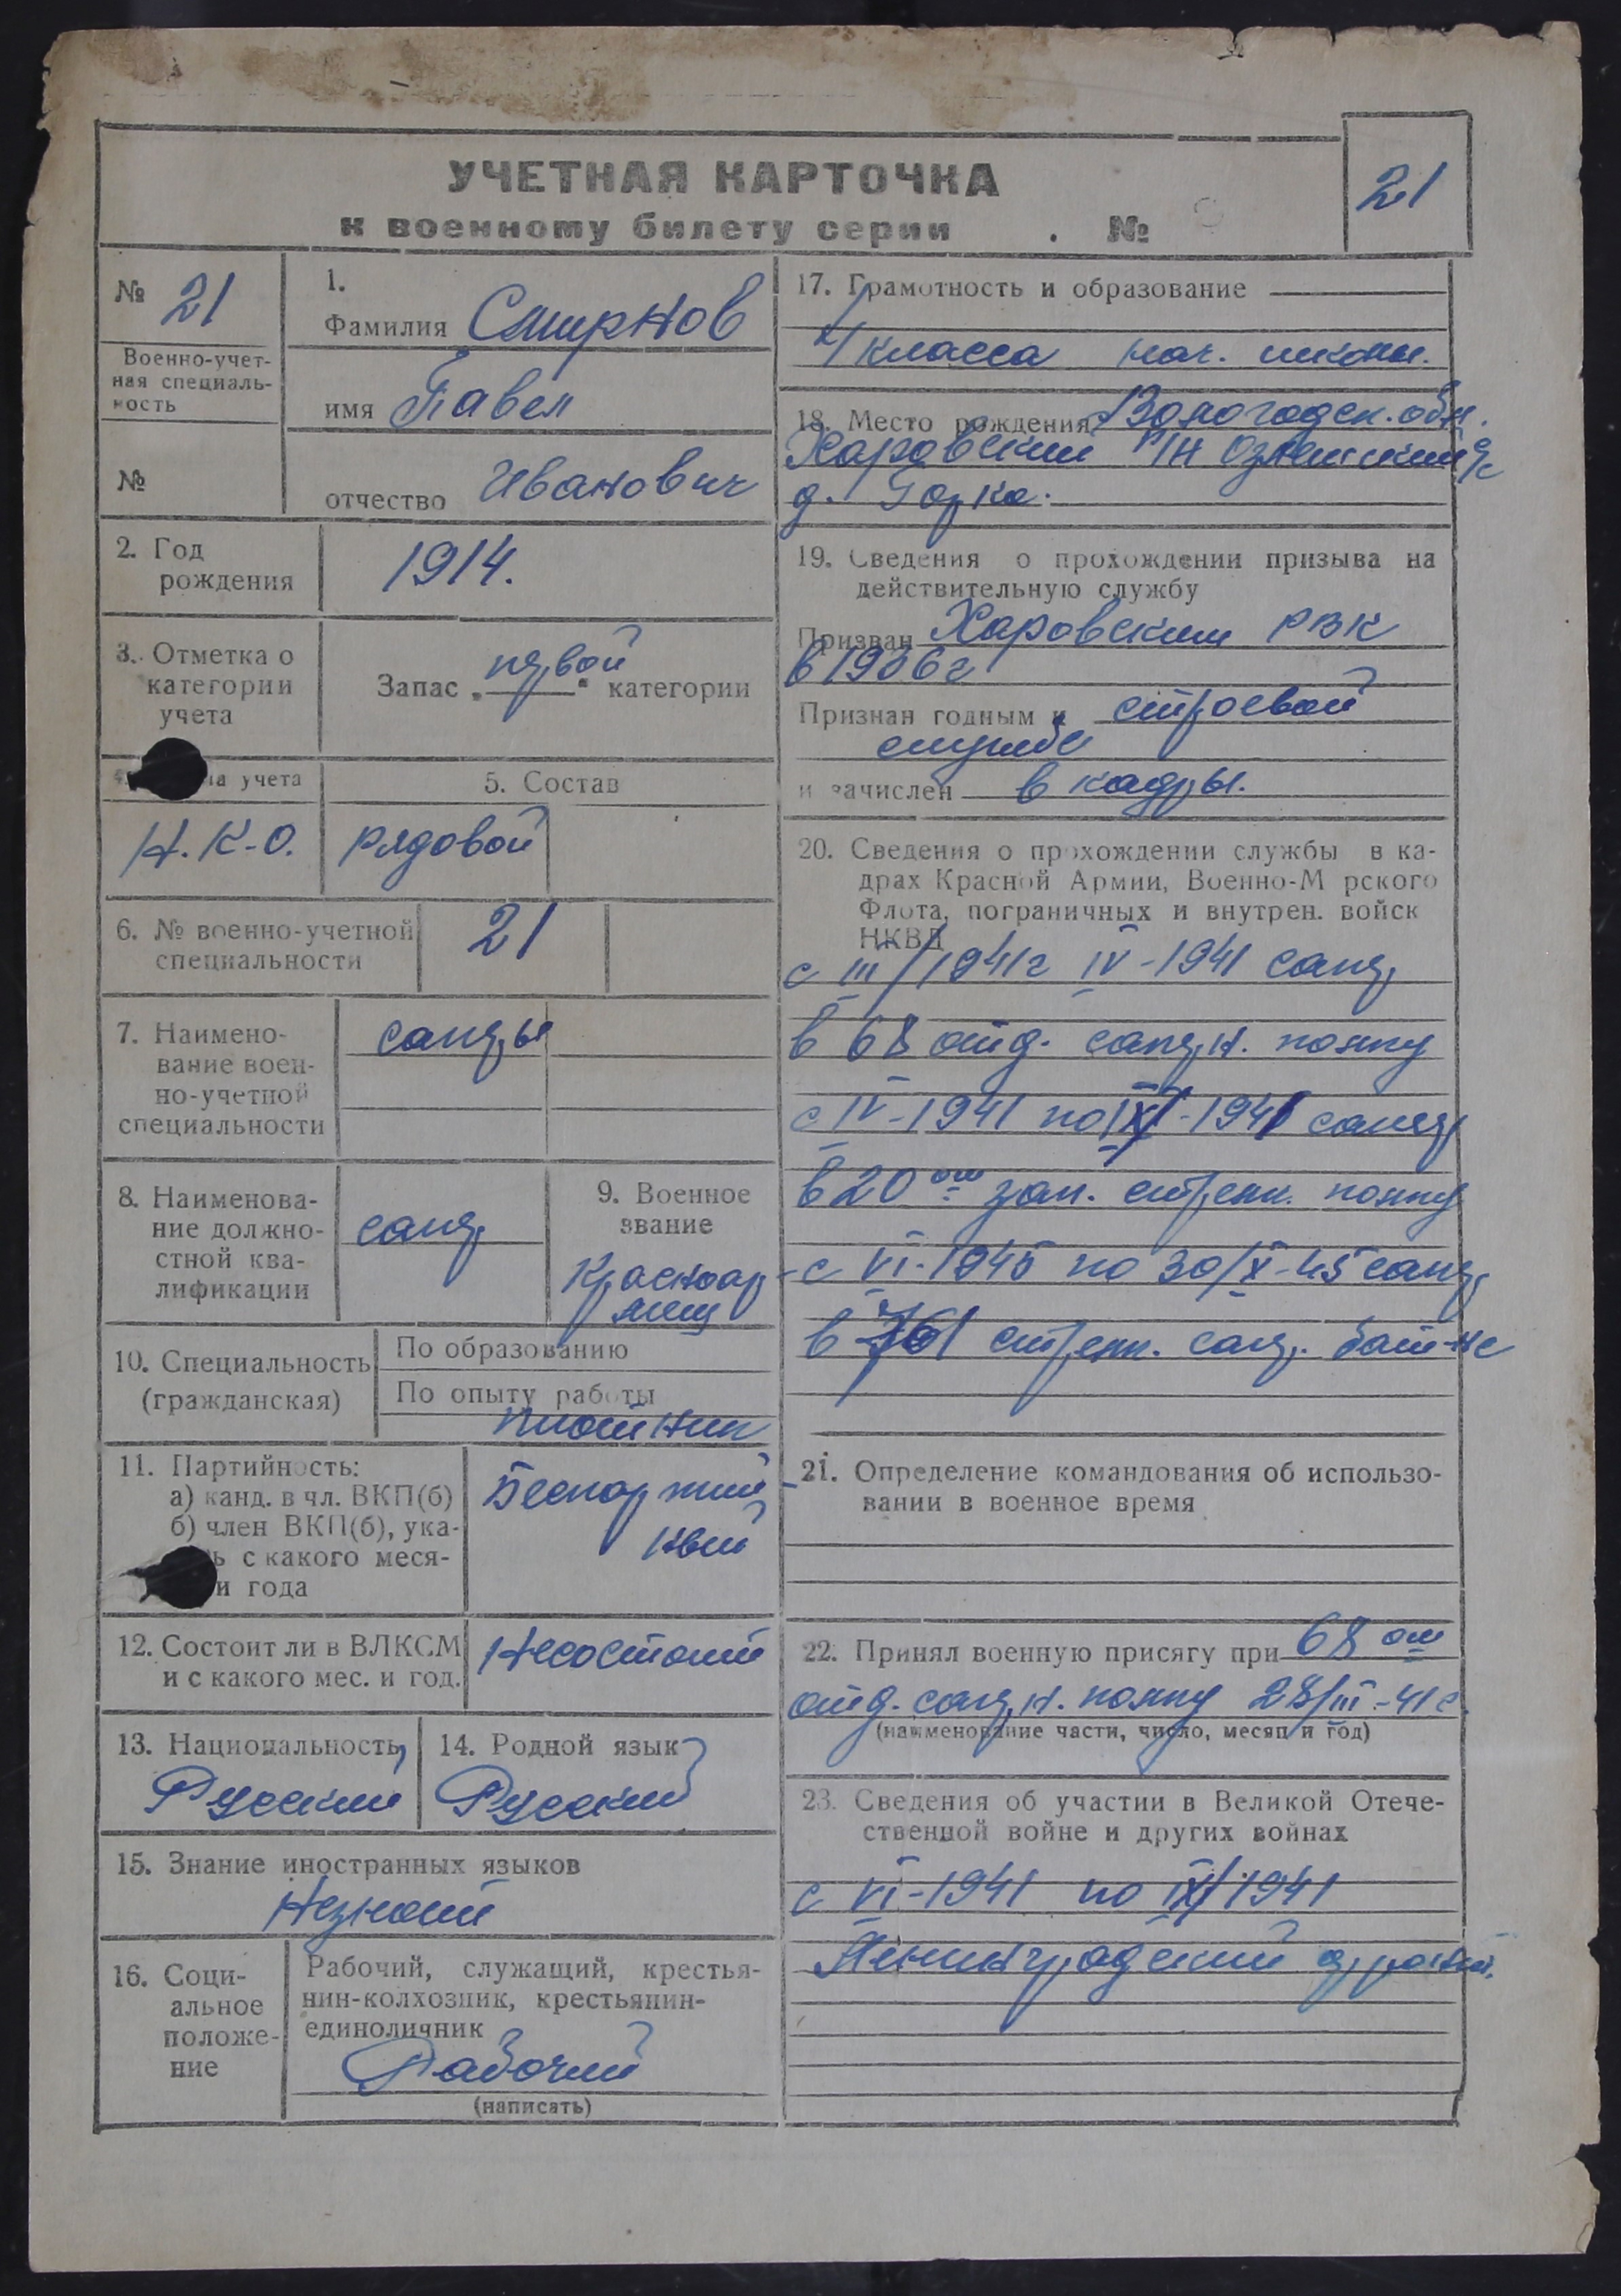 УЧЕТНАЯ КАРТОЧКА
к военному билету серии . №
21
№ 21
Военно-учет-
ная специаль-
ность
№
1.
Фамилия Смирнов
имя Павел
отчество Иванович
2. Год
рождения
1914.
3. Отметка о
категории
учета
Запас „первой“ категории
па учета
Н.К.О.
5. Состав
рядовой
6. № военно-учетной
специальности
21
7. Наимено-
вание воен-
но-учетной
специальности
саперы
8. Наименова-
ние должно-
стной ква-
лификации
сапер
9. Военное
звание
Красноар-
меец
10. Специальность
(гражданская)
По образованию
По опыту работы
плотник
11. Партийность:
а) канд. в чл. ВКП(б)
б) член ВКП(б), ука-
ь с какого меся-
и года
Беспартий-
ный
12. Состоит ли в ВЛКСМ
и с какого мес. и год.
Несостоит
13. Национальность
Русский
14. Родной язык
Русский
15. Знание иностранных языков
Незнает
16. Соци-
альное
положе-
ние
Рабочий, служащий, крестья-
нин-колхозник, крестьянин-
единоличник
Рабочий
(написать)
17. Грамотность и образование
4 класса нач. школы.
18. Место рождения Вологодск. обл.
Харовский р/н с/с
д. Горка.
19. Сведения о прохождении призыва на
действительную службу
Призван Харовским РВК
в 1936г
Признан годным к строевой
службе
и зачислен в кадры.
20. Сведения о прохождении службы в ка-
драх Красной Армии, Военно-М рского
Флота, пограничных и внутрен. войск
НКВД
с III/1941г IV-1941 сапер
в 68 отд. саперн. полку
с IV-1941 по IX-1941 сапер
в 20ом зап. стрелк. полку
с VI-1945 по 30/X-45 сапер
в стрелк. сапер. бат-не
21. Определение командования об использо-
вании в военное время
22. Принял военную присягу при 68 ом
отд. саперн. полку 28/III-41г.
(наименование части, число, месяц и год)
23. Сведения об участии в Великой Отече-
ственной войне и других войнах
с VI-1941 по IX/1941
Ленинградский фронт.